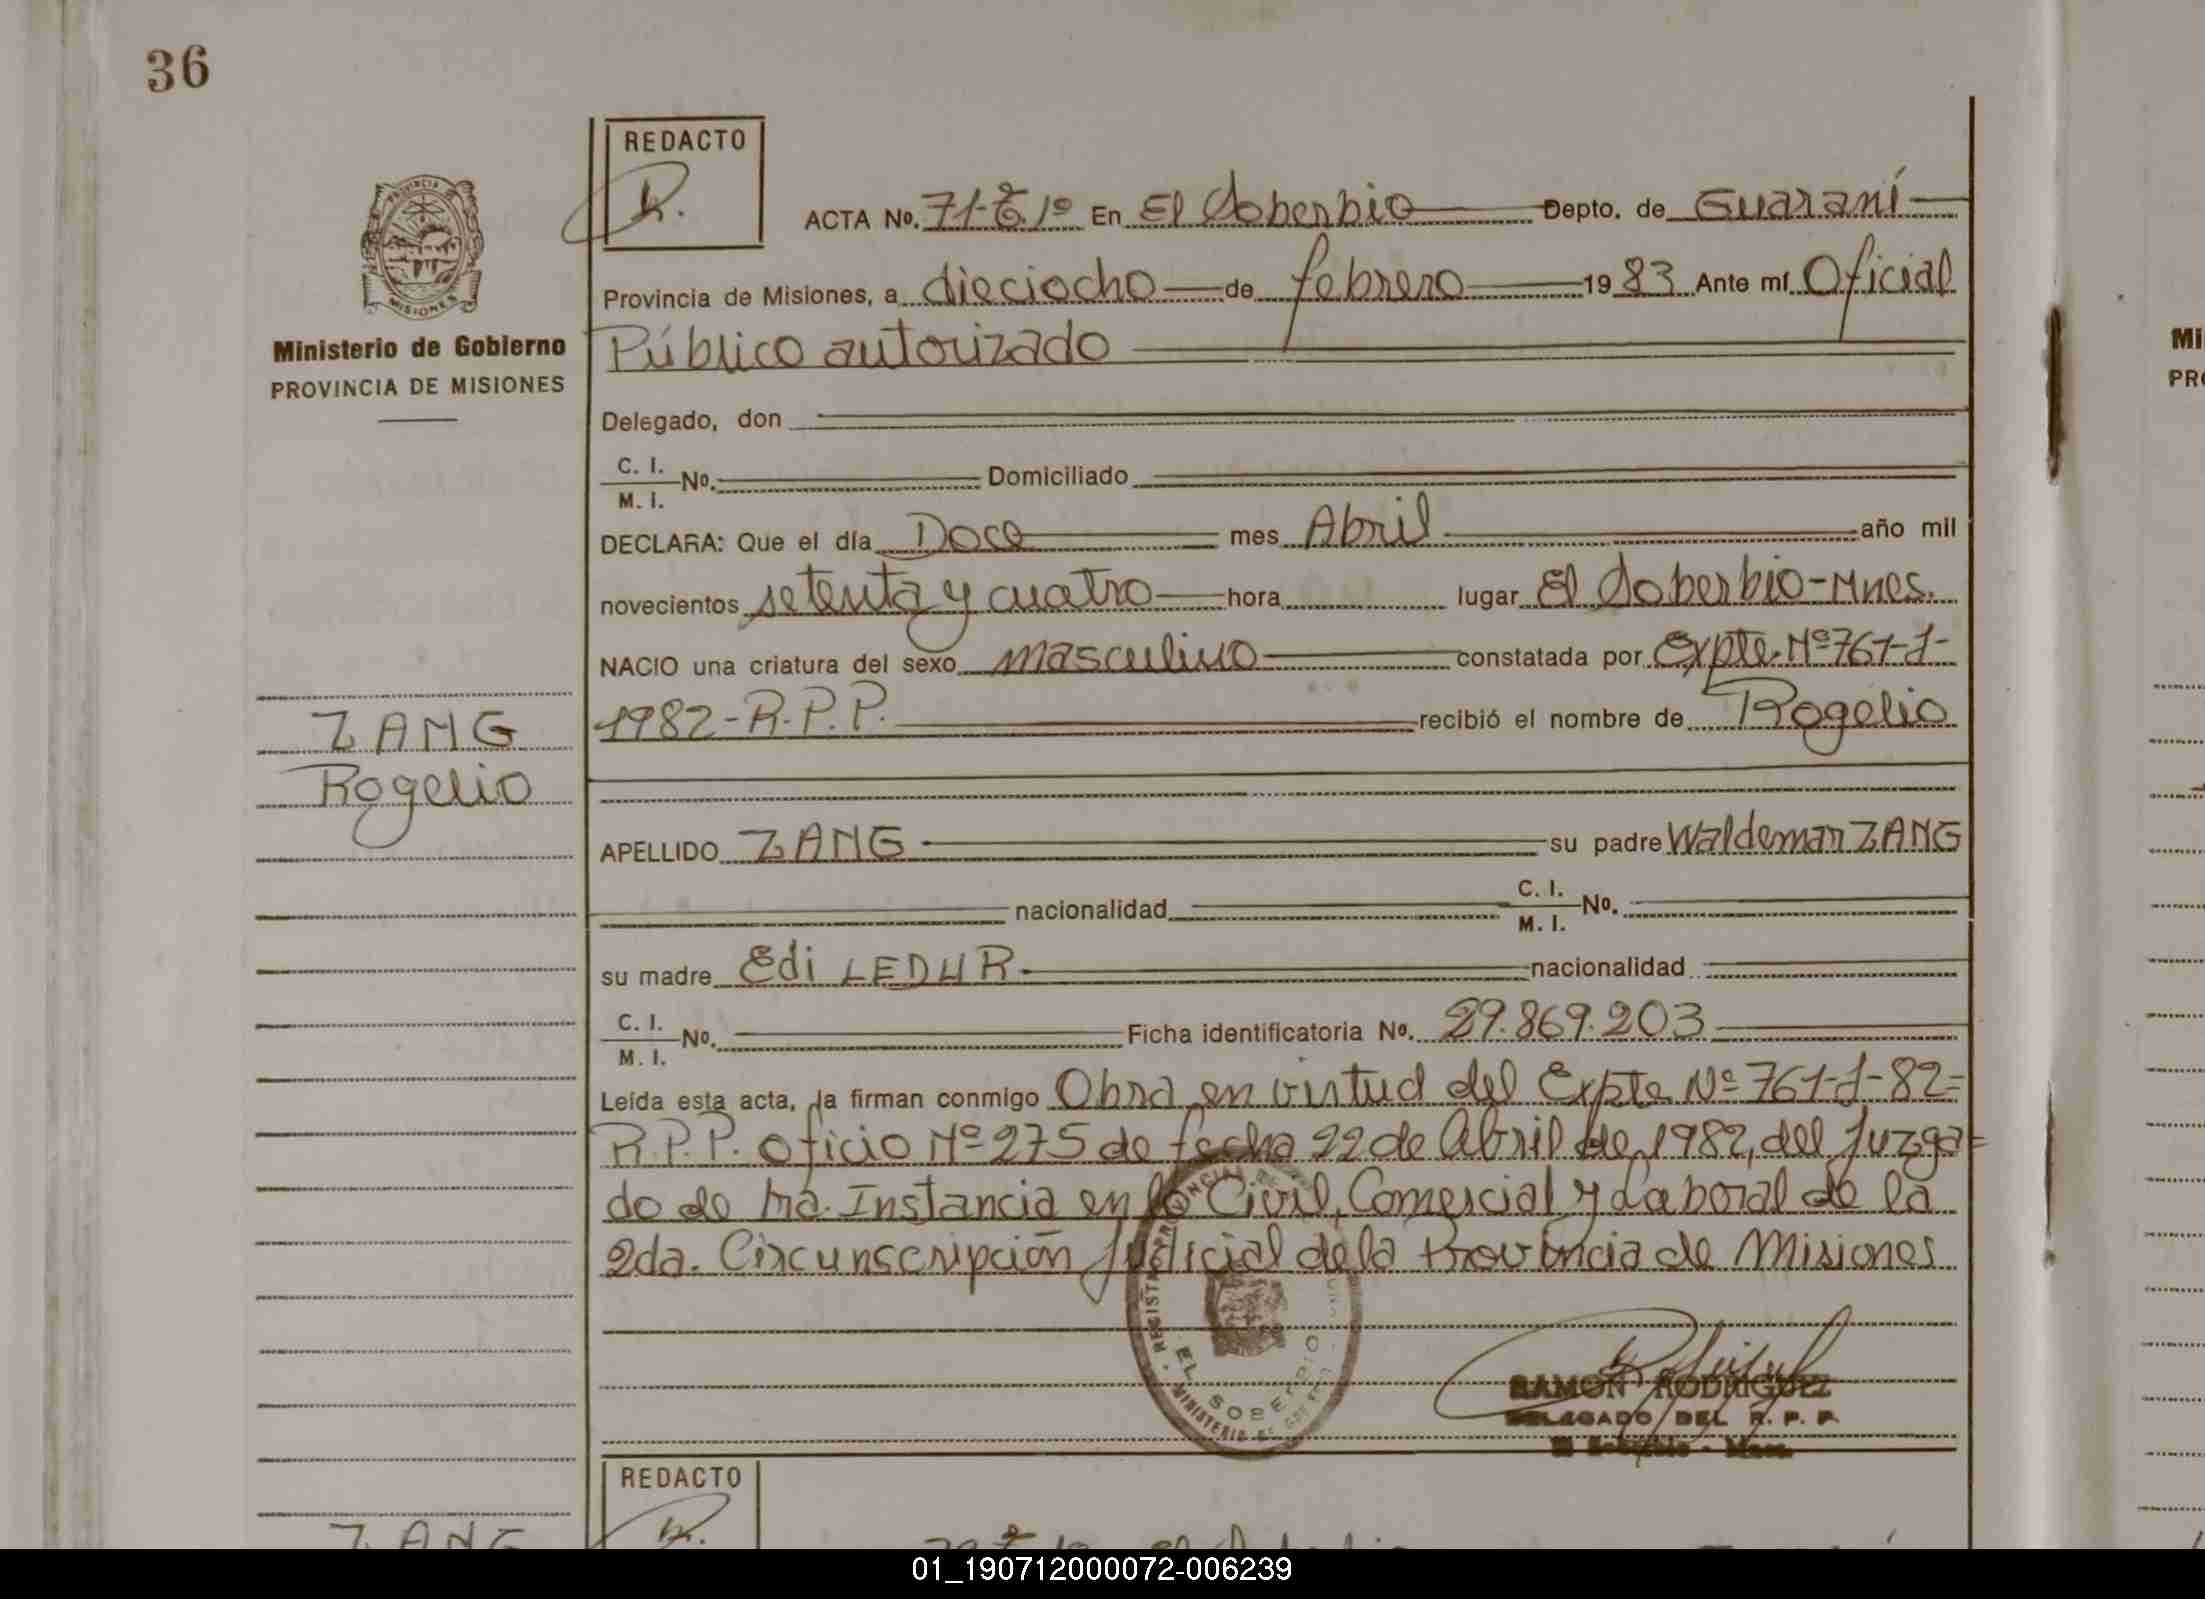 36
REDACTO
ACTA No. 71-Tº 1º En El Soberbio Depto. de Guaraní
Provincia de Misiones, a dieciocho de febrero 1983 Ante mí Oficial
Público autorizado
Ministerio de Gobierno
PROVINCIA DE MISIONES
Delegado, don
C. I.
M. I. No. Domiciliado
DECLARA: Que el día Doce mes Abril año mil
novecientos setenta y cuatro hora lugar El Soberbio-Mnes.
NACIO una criatura del sexo masculino constatada por Expte. Nº 761-J-
1982-R.P.P. recibió el nombre de Rogelio
ZANG
Rogelio
APELLIDO ZANG su padre Waldemar ZANG
nacionalidad C. I.
M. I. No.
su madre Edi LEDUR nacionalidad
C. I.
M. I. No. Ficha identificatoria No. 29.869.203
Leída esta acta, la firman conmigo Obra en virtud del Expte Nº 761-J-82=
R.P.P. oficio Nº 275 de fecha 22 de Abril de 1982, del Juzga=
do de 1ra. Instancia en lo Civil, Comercial y Laboral de la
2da. Circunscripción Judicial de la Provincia de Misiones
EL SOBERBIO
RAMON RODRIGUEZ
DELEGADO DEL R. P. P.
El Soberbio - Mnes.
REDACTO
ZANG
01_190712000072-006239